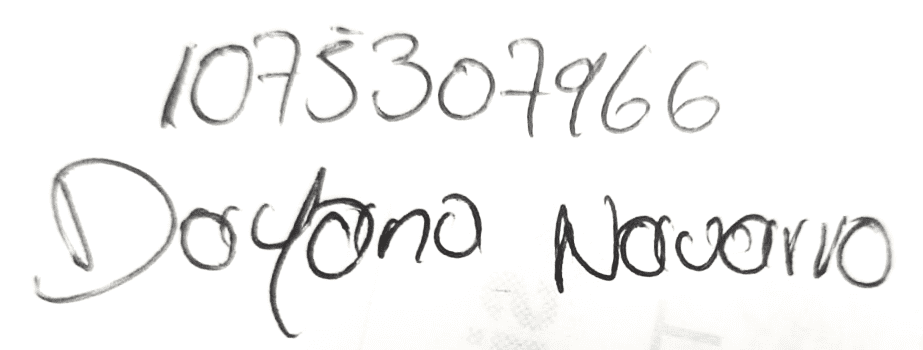 1075307966
Dayana Navarro